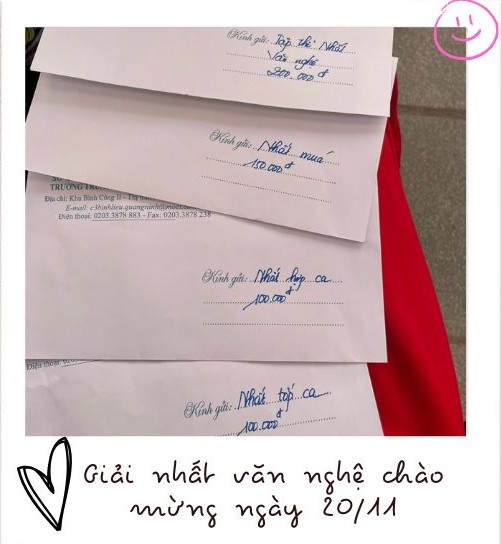 Kính gửi: Tập thể Nhất
Văn nghệ
200.000đ
Kính gửi: Nhất múa
150.000đ
TRƯỜNG
Địa chỉ: Khu Bình Công II - Thị
E-mail: c3binhlieu.quangninh@moet
Điện thoại: 0203.3878 883 - Fax: 0203.3878 238
Kính gửi: Nhất hợp ca
100.000đ
Điện thoại:
Kính gửi: Nhất tốp ca
100.000đ
Giải nhất văn nghệ chào
mừng ngày 20/11